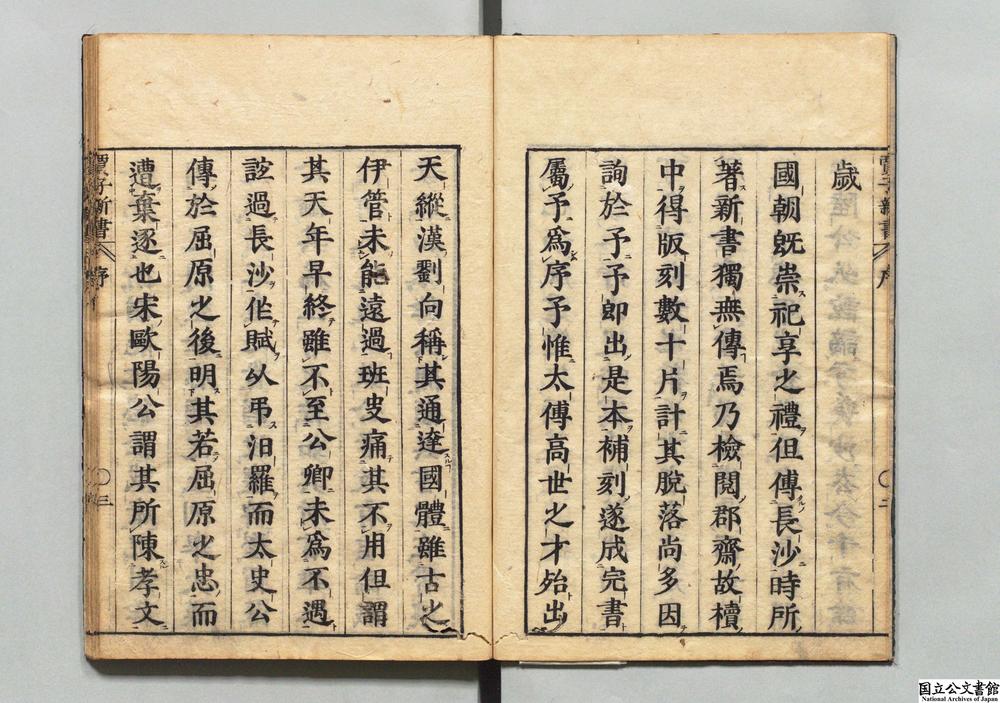 歲
國朝既崇祀享之禮但傅長沙時所
著新書獨無傳焉乃檢閱郡齋故櫝
中得版刻數十片計其脫落尚多因
詢於予予即出是本補刻遂成完書
屬予爲序予惟太傅高世之才殆出
天縱漢劉向稱其通達國體雖古之
伊管未能遠過班史痛其不用但謂
其天年早終雖不至公卿未爲不遇
誼過長沙作賦以弔汨羅而太史公
傳於屈原之後明其若屈原之忠而
遭棄逐也宋歐陽公謂其所陳孝文
賈子新書 序 二
賈子新書 序 三
国立公文書館
National Archives of Japan